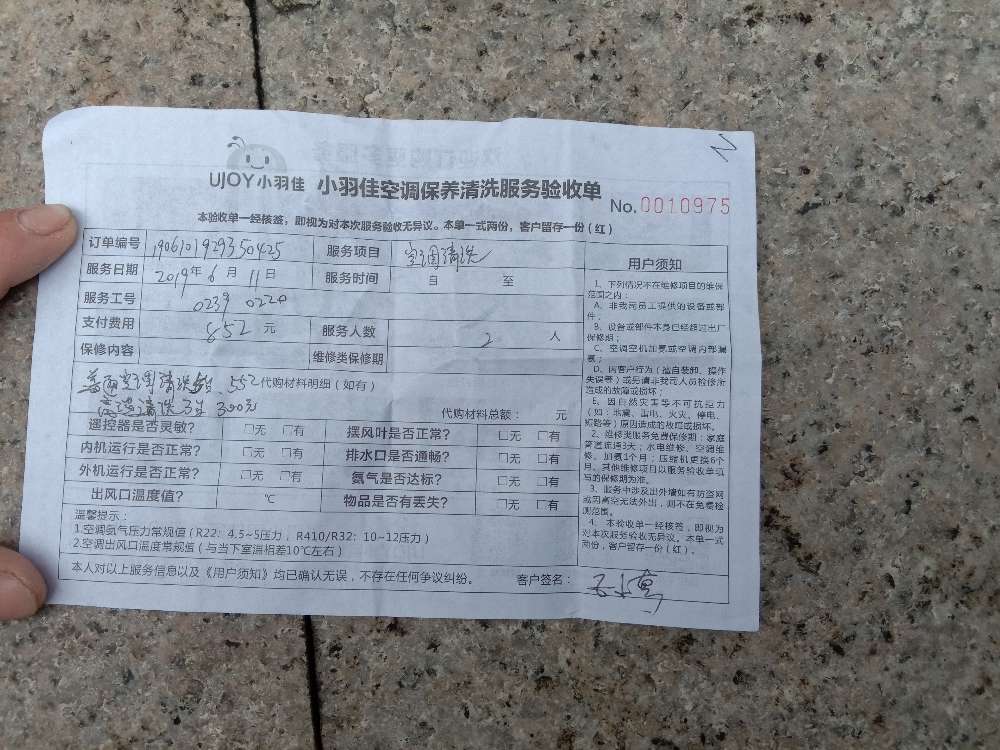 UJOY小羽佳 小羽佳空调保养清洗服务验收单
No.0010975
本验收单一经核签，即视为对本次服务验收无异议。本单一式两份，客户留存一份（红）
订单编号 1906101929350425 服务项目 空调清洗
服务日期 2019年6月11日 服务时间 自 至
服务工号 0239 0220
支付费用 852元 服务人数 2人
保修内容 维修类保修期
普通空调清洗 552 代购材料明细（如有）
高温清洗 300元
代购材料总额： 元
遥控器是否灵敏？ □无 □有 摆风叶是否正常？ □无 □有
内机运行是否正常？ □无 □有 排水口是否通畅？ □无 □有
外机运行是否正常？ □无 □有 氨气是否达标？ □无 □有
出风口温度值？ ℃ 物品是否有丢失？ □无 □有
温馨提示：
1.空调氨气压力常规值（R22：4.5~5压力，R410/R32：10~12压力）
2.空调出风口温度常规值（与当下室温相差10℃左右）
本人对以上服务信息以及《用户须知》均已确认无误，不存在任何争议纠纷。 客户签名：
用户须知
1、下列情况不在维修项目的维保
范围之内：
A、非我司员工提供的设备或部
件；
B、设备或部件本身已经超过出厂
保修期；
C、空调空机加氨或空调内部漏
氨；
D、因客户行为（擅自装卸、操作
失误等）或另请非我司人员检修所
造成的故障或损坏；
E、因自然灾害等不可抗拒力
（如：地震、雷电、火灾、停电、
短路等）原因造成的故障或损坏。
2、维修类服务免费保修期：家庭
管道疏通3天；水电维修、空调维
修、加氨1个月；压缩机更换6个
月。其他维修项目以服务验收单填
写的保修期为准。
3、服务中涉及出外墙如有防盗网
或因高空无法外出，则不在免费检
测范围。
4、本验收单一经核签，即视为
对本次服务验收无异议。本单一式
两份，客户留存一份（红）。